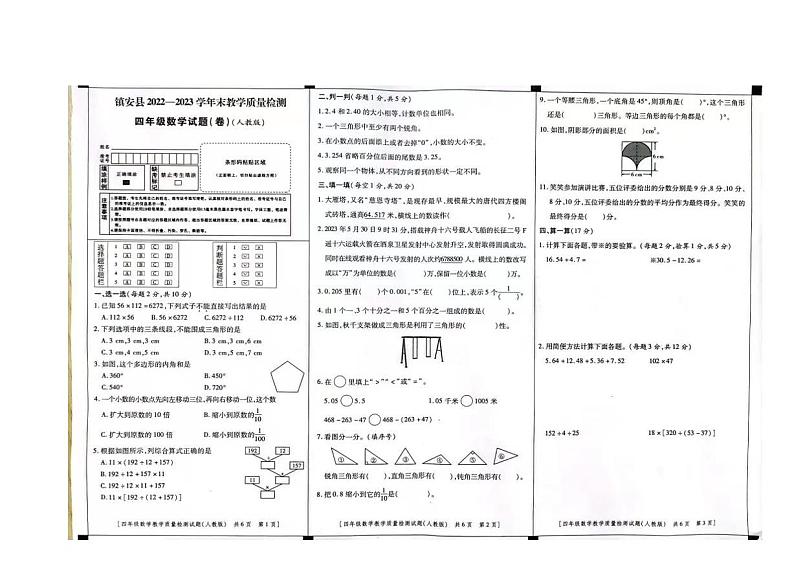 镇安县 2022—2023 学年末教学质量检测
四年级数学试题(卷)(人教版)
姓名
条形码粘贴区域
正确填涂
缺考标记
禁止考生填涂
注意事项
选择题答题栏
1 A B C D
2 A B C D
3 A B C D
4 A B C D
5 A B C D
判断题答题栏
1 ✓ ×
2 ✓ ×
3 ✓ ×
4 ✓ ×
5 ✓ ×
一、选一选(每题 2 分,共 10 分)
1. 已知 56×112=6272,下列式子不能直接写出结果的是
A. 112×56 B. 56×6272 C. 6272÷112 D. 6272÷56
2. 下列选项中的三条线段,不能围成三角形的是
A. 3 cm,3 cm,3 cm B. 3 cm,3 cm,6 cm
C. 3 cm,4 cm,5 cm D. 3 cm,5 cm,7 cm
3. 如图,这个多边形的内角和是
A. 360° B. 450°
C. 540° D. 720°
4. 一个小数的小数点先向左移动三位,再向右移动一位,这个数
A. 扩大到原数的 10 倍 B. 缩小到原数的1/10
C. 扩大到原数的 100 倍 D. 缩小到原数的1/100
5. 根据如图所示,列综合算式正确的是
A. 11×(192÷12+157)
B. 192÷12+157×11
C. 192÷12×(157+11)
D. 11×[192÷(12+157)]
192 12
÷ 157
11 +
×
[四年级数学教学质量检测试题(人教版) 共 6 页 第 1 页]
二、判一判(每题 1 分,共 5 分)
1. 2.4 和 2.40 的大小相等,计数单位也相同。
2. 一个三角形中至少有两个锐角。
3. 在小数点的后面添上或者去掉“0”,小数的大小不变。
4. 3.254 省略百分位后面的尾数是 3.25。
5. 观察同一个物体,从不同方向看到的形状一定不同。
三、填一填(每空 1 分,共 20 分)
1. 大雁塔,又名“慈恩寺塔”,是现存最早、规模最大的唐代四方楼阁
式砖塔,通高64.517 米,横线上的数读作( )。
2. 2023 年 5 月 30 日 9 时 31 分,搭载神舟十六号载人飞船的长征二号 F
遥十六运载火箭在酒泉卫星发射中心发射升空,发射取得圆满成功。
同时在线观看神舟十六号发射的人次约6788500 人。横线上的数改写
成以“万”为单位的数是( )万,保留一位小数是( )万。
3. 0.205 里有( )个 0.001,“5”在( )位上,表示 5 个1/( )。
4. 由 1 个一,3 个十分之一和 5 个百分之一组成的数是( )。
5. 如图,秋千支架做成三角形是利用了三角形的( )性。
6. 在○里填上“>”“<”或“=”。
5.05○5.5 1.05 千米○1005 米
468-263+47○468-(263+47)
7. 看图分一分。(填序号)
① ② ③ ④ ⑤ ⑥
锐角三角形有( ),直角三角形有( ),钝角三角形有( )。
8. 把 0.8 缩小到它的1/10是( )。
[四年级数学教学质量检测试题(人教版) 共 6 页 第 2 页]
9. 一个等腰三角形,一个底角是 45°,则顶角是( )°,这个三角形
还是( )三角形。等边三角形的每个角都是( )°。
10. 如图,阴影部分的面积是( )cm²。
6 cm
6 cm
11. 笑笑参加演讲比赛,五位评委给出的分数分别是 9 分、8 分、10 分、
8 分、10 分,五位评委给出的分数的平均分作为最终得分。笑笑的
最终得分是( )分。
四、算一算(17 分)
1. 计算下面各题,带※的要验算。(每题 2 分,验算 1 分,共 5 分)
16.54+4.7= ※30.5-12.26=
2. 用简便方法计算下面各题。(每题 3 分,共 12 分)
5.64+12.48+5.36+7.52 102×47
152÷4÷25 18×[320÷(53-37)]
[四年级数学教学质量检测试题(人教版) 共 6 页 第 3 页]